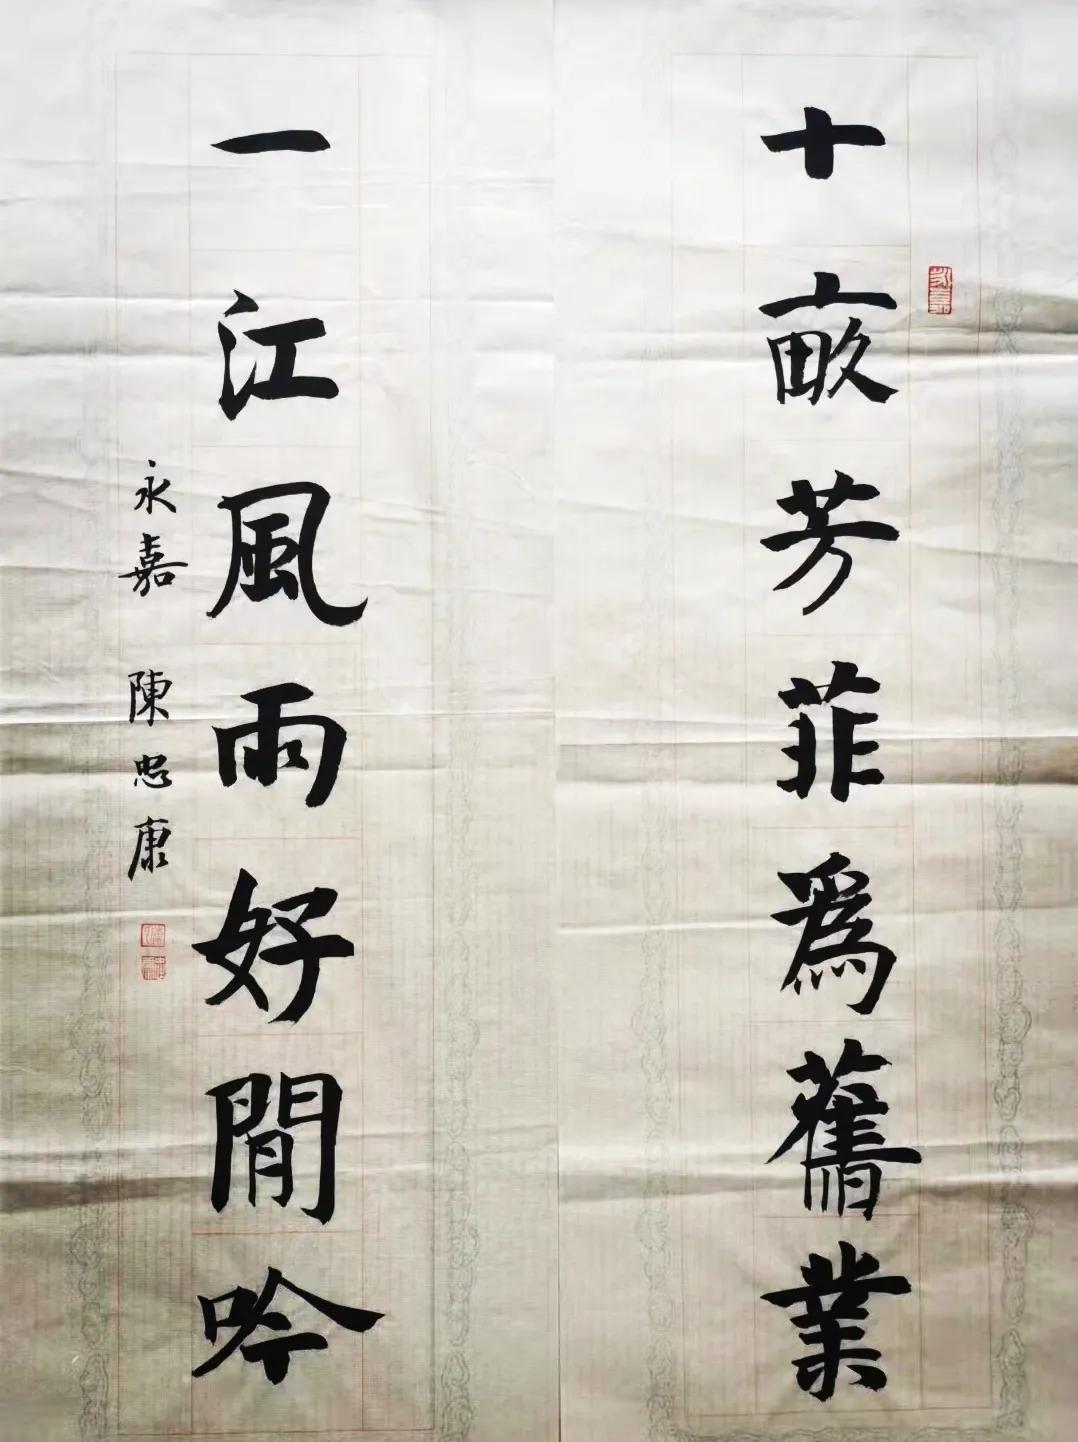 十畝芳菲為舊業
一江風雨好閒吟
永嘉 陳忠康
永嘉